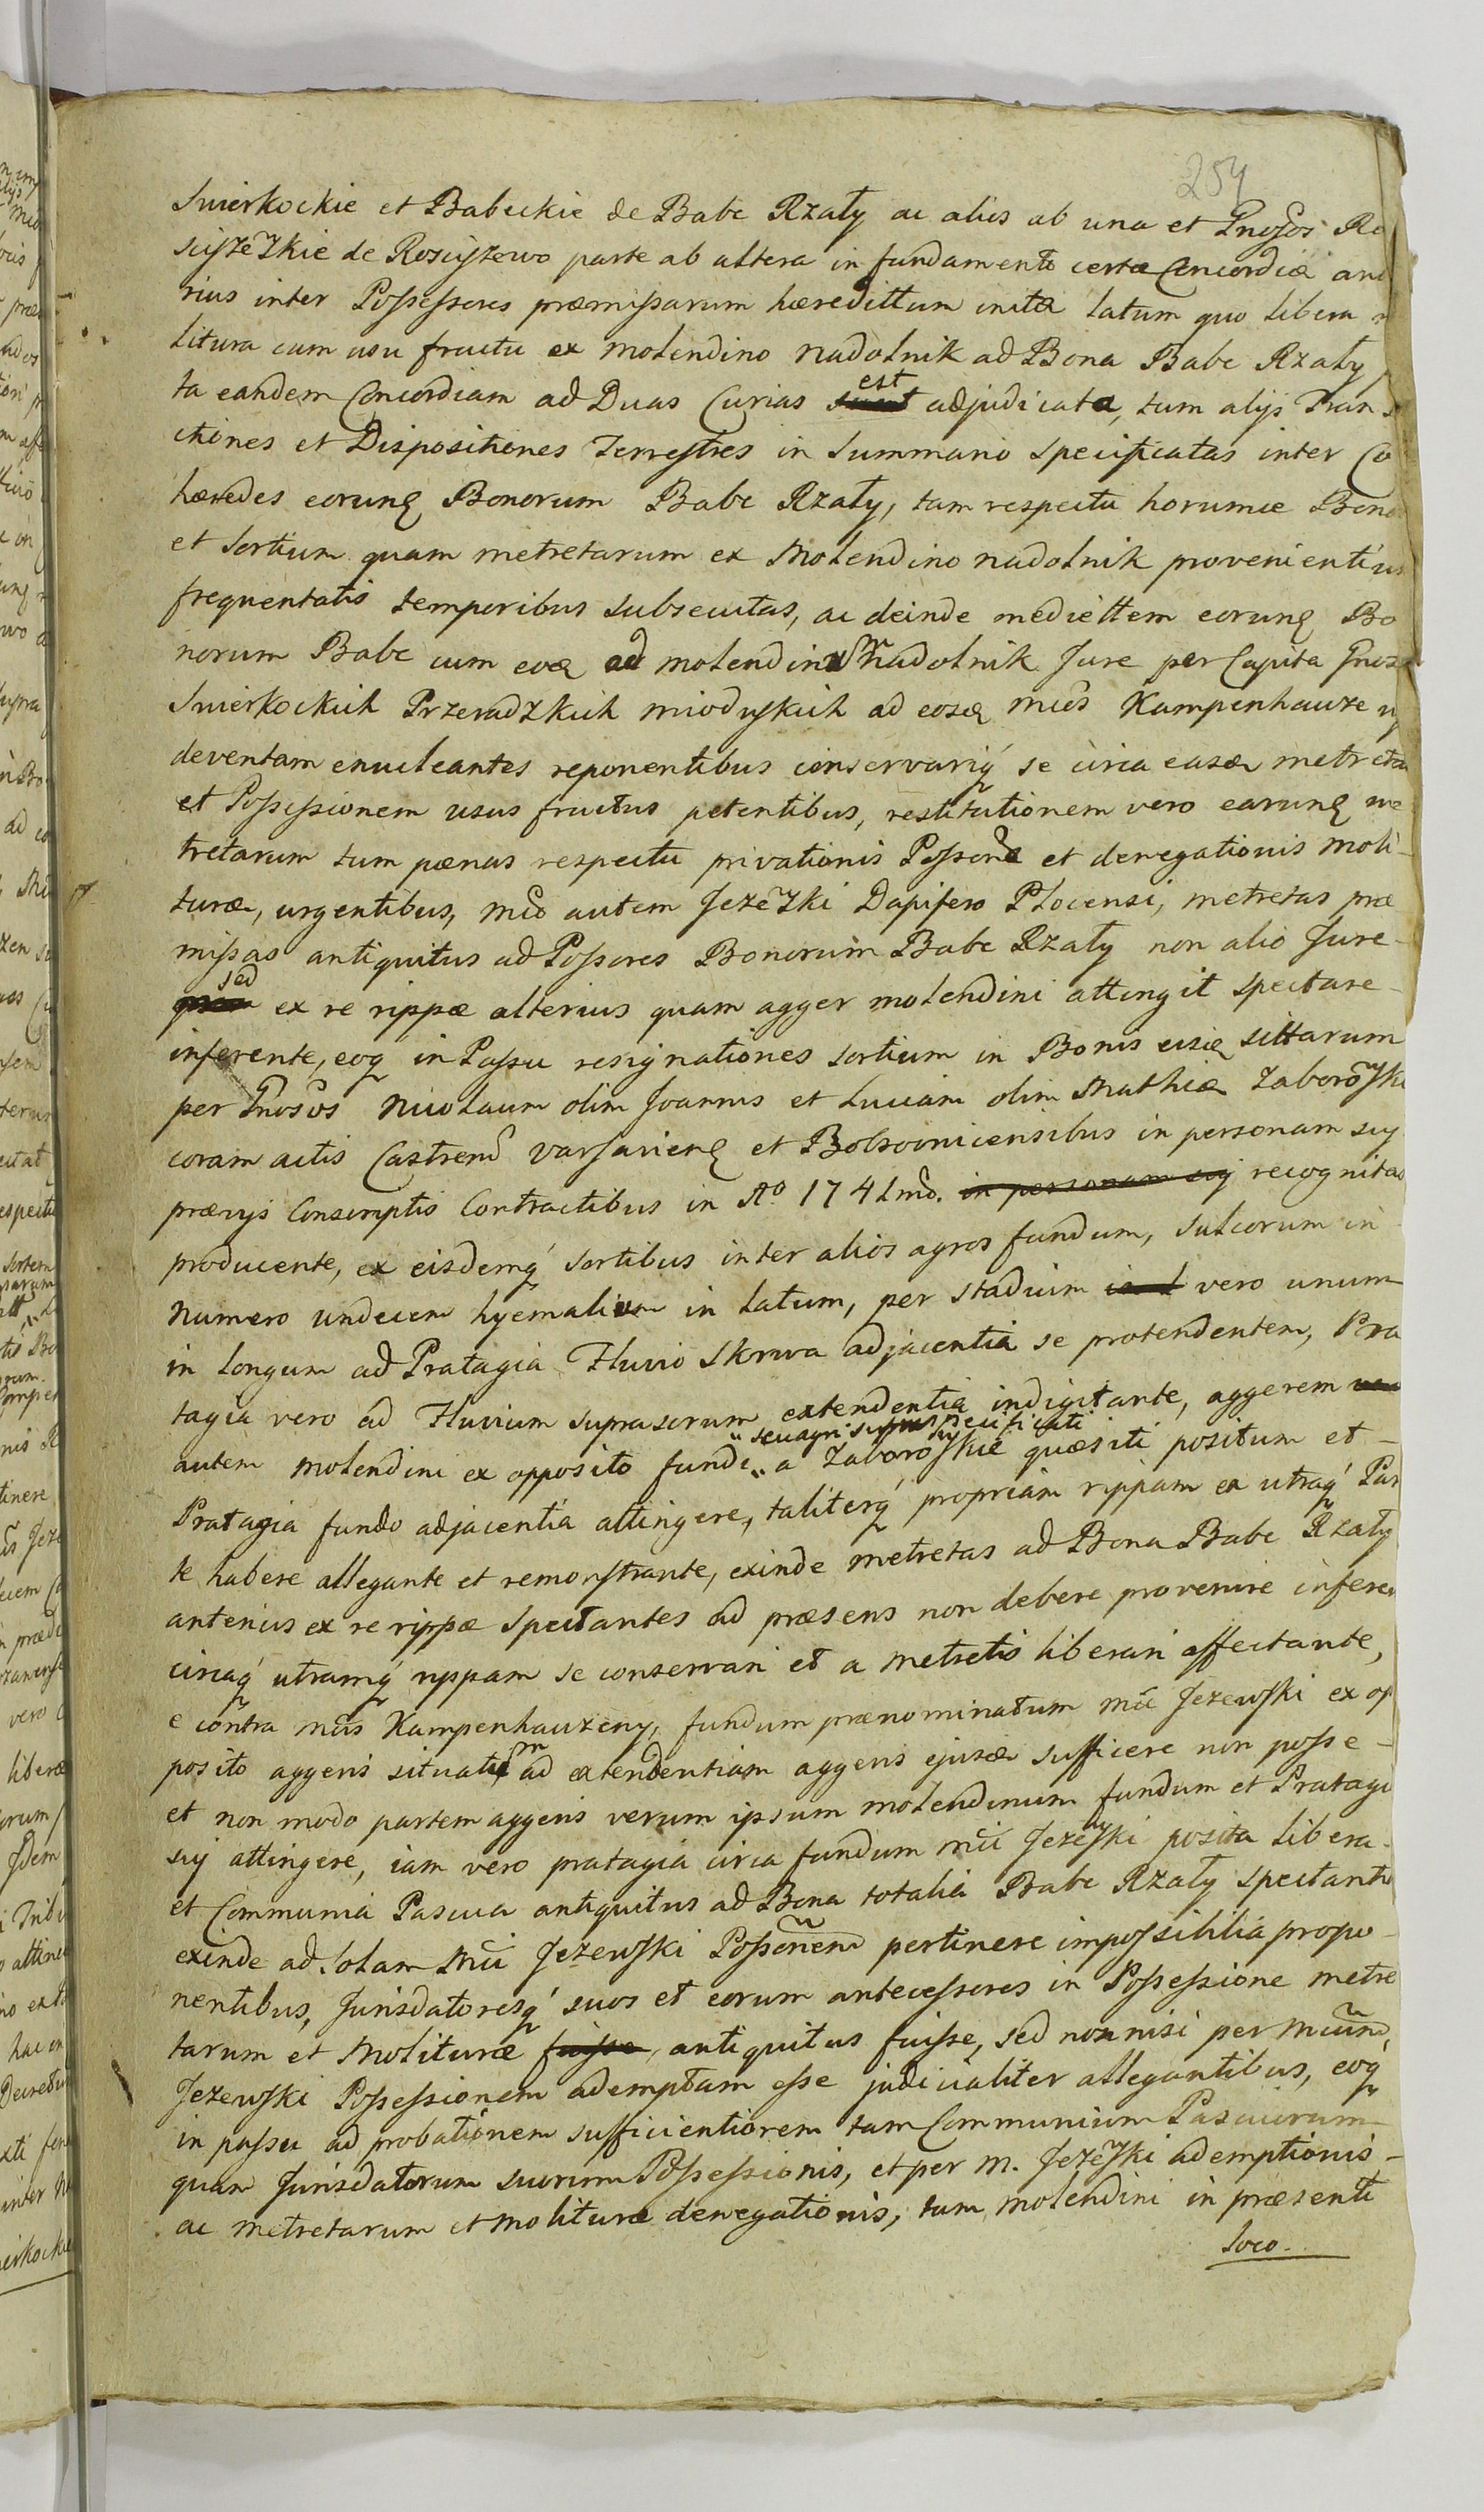 254
Swierkockie et Babeckie de Babe Rzały ac aliis ab una et Gnosos Ro
sciszewskie de Rosciszewo parte ab altera in fundamento certæ Concordiæ
rius inter Possessores præmissarum hæredittum initæ latum quo libera
litura cum usu fructu ex molendino Nadolnik ad Bona Babe Rzały
ta eandem Concordiam ad Duas Curias est adjudicata, tum alijs Trans
ctiones et Dispositiones Terrestres in Summario specificatas inter Co
hæredes eorunq Bonorum Babe Rzały, tam respectu horumce Bono
et Sortium quam metretarum ex Molendino nadolnik provenientiu
frequentatis temporibus subsecutas, ac deinde mediettem eorunq Bo
norum Babe cum eoæ ad molendinum Nadolnik Jure per Capita Gnos
Swierkockich Przeradzkich mioduskich ad eosæ mcos Kampenhauze
deventam enucleantes reponentibus conservariq́ se circa easæ metreta
et Possessionem usus fructus petentibus, restitutionem vero earunq me
tretarum tum pœnas respectu privationis Possona et denegationis moli-
turæ, urgentibus, mco autem Jezewski Dapifero Plocensi, metretas præ
missas antiquitus ad Possores Bonorum Babe Rzały non alio Jure-
sed ex re rippæ alterius quam agger molendini attingit spectare-
inferente, eoq in Passu resignationes sortium in Bonis eisæ sittarum
per Gnosos Nicolaum olim Joannis et Luciam olim Mathiæ Zaborowski
coram actis Castrens Varsavienq et Bolsovnicensibus in personam suy
prævys Conscriptis Contractibus in Ao 1741mo. in personam suy recognitas
producente, ex eisdemq́ sortibus inter alios agros fundum, sulcorum in
numero undecem hyemalium in latum, per stadium vero unum
in longum ad Pratagia Fluvio Skrwa adjacentia se protendentem, Pra
tagia vero ad Fluvium suprascrum extendentia indigitante, aggerem
seu agri supraspecificati
autem molendini ex opposito fundi „ a Zaborowskie quæsiti positum et-
Pratagia fundo adjacentia attingere, taliterq́ propriam rippam ex utraq́ Par
te habere allegante et remonstrante, exinde metretas ad Bona Babe Rzały
anterius ex re rippæ spectantes ad præsens non debere provenire inferen
circaq́ utramq́ rippam se conservari et a metretis liberari affectante,
e contra mcus Kampenhauzeny, fundum prænominatum mci Jezewski ex op
posito aggeris situatum ad extendentiam aggeris ejusæ sufficere non posse-
et non modo partem aggeris verum ipsum molendinum fundum et Pratagi
suy attingere, iam vero pratagia circa fundum mci Jezewski posita libera-
et Communia Pascua antiquitus ad Bona totalia Babe Rzały spectanti
exinde ad solam Mci Jezewski Possonem pertinere impossibilia propo-
nentibus, Jurisdatoresq́ suos et eorum antecessores in Possessione metre
tarum et Molituræ fuisse, antiquitus fuisse, sed nonnisi per Mcum
Jezewski Possessionem ademptam esse judicialiter allegantibus, eoq́
in passu ad probationem sufficientiorem tam Communium Pascuorum-
quam Jurisdatorum suorum Possessionis, et per M. Jezewski ademptionis-
ac metretarum et molituræ denegationis, tam molendini in præsenti
loco.